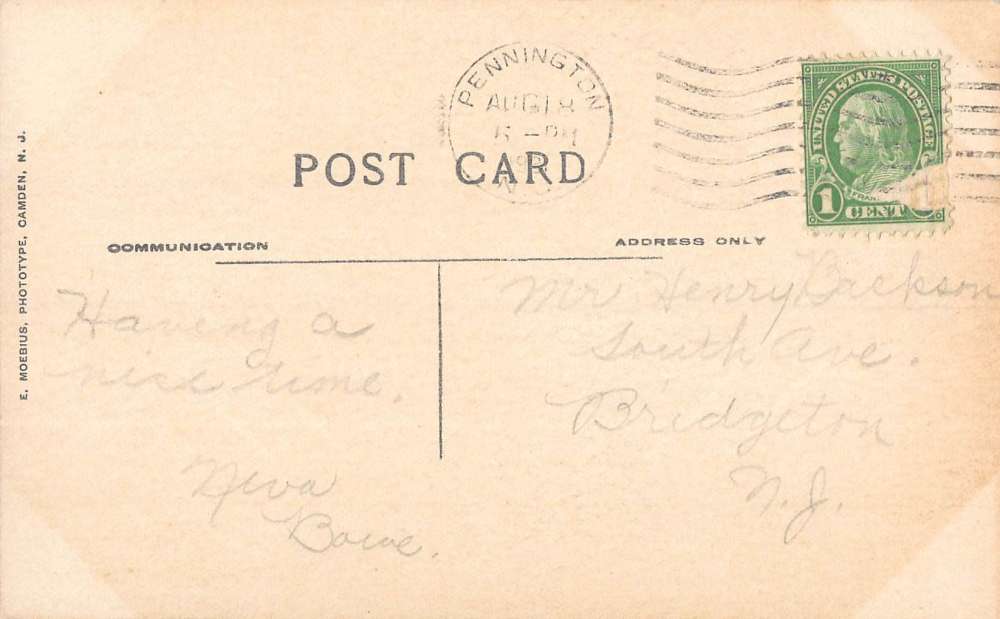 PENNINGTON
AUG 18
5 - PM
N.J.
UNITED STATES POSTAGE
FRAN
1 CENT
POST CARD
COMMUNICATION
ADDRESS ONLY
E. MOEBIUS, PHOTOTYPE, CAMDEN, N. J.
Having a
nice time.
Neva
Bowe.
Mr Henry Backson
South Ave.
Bridgeton
N.J.